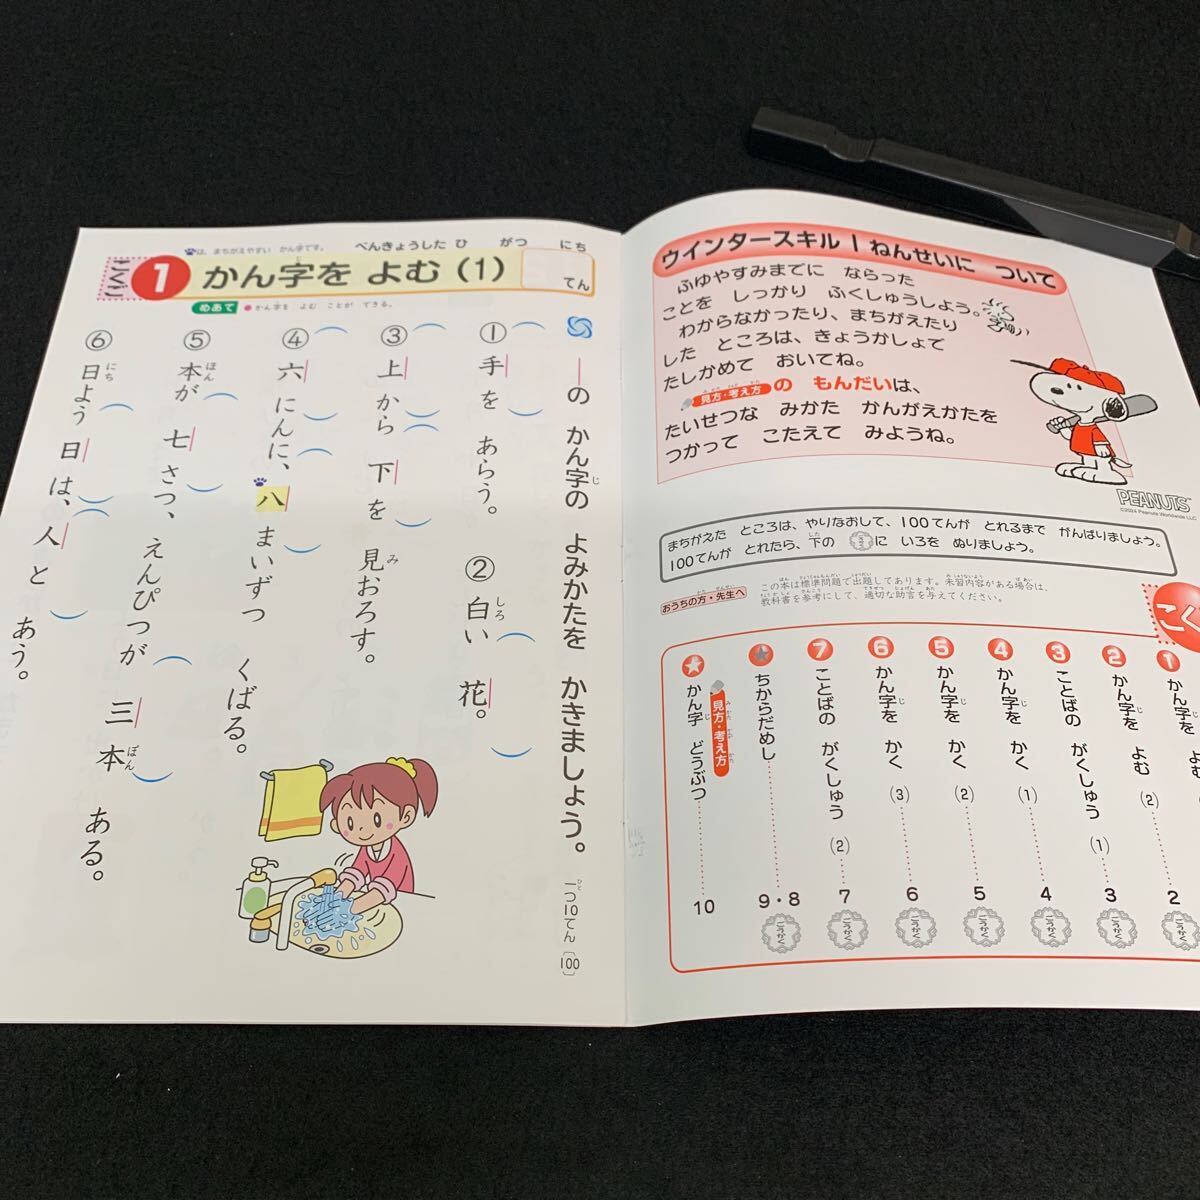 🐾は、まちがえやすい かん字です。
べんきょうした ひ がつ にち
1 かん字を よむ（1）
てん
めあて ●かん字を よむ ことが できる。
―の かん字の よみかたを かきましょう。
一つ10てん〔100〕
① 手を あらう。
② 白い 花。
③ 上から 下を 見おろす。
④ 六にんに、八まいずつ くばる。
⑤ 本が 七さつ、えんぴつが 三本 ある。
⑥ 日よう日は、人と あう。
ウインタースキル 1ねんせいに ついて
ふゆやすみまでに ならった
ことを しっかり ふくしゅうしよう。
わからなかったり、まちがえたり
した ところは、きょうかしょで
たしかめて おいてね。
見方・考え方の もんだいは、
たいせつな みかた かんがえかたを
つかって こたえて みようね。
PEANUTS
©2024 Peanuts Worldwide LLC
まちがえた ところは、やりなおして、100てんが とれるまで がんばりましょう。
100てんが とれたら、下の に いろを ぬりましょう。
おうちの方・先生へ
この本は標準問題で出題してあります。未習内容がある場合は、
教科書を参考にして、適切な助言を与えてください。
こく
1 かん字を よむ
2 かん字を よむ（2） 2 ごうかく
3 ことばの がくしゅう（1） 3 ごうかく
4 かん字を かく（1） 4 ごうかく
5 かん字を かく（2） 5 ごうかく
6 かん字を かく（3） 6 ごうかく
7 ことばの がくしゅう（2） 7 ごうかく
★ ちからだめし 9・8 ごうかく
★ 見方・考え方 かん字 どうぶつ 10